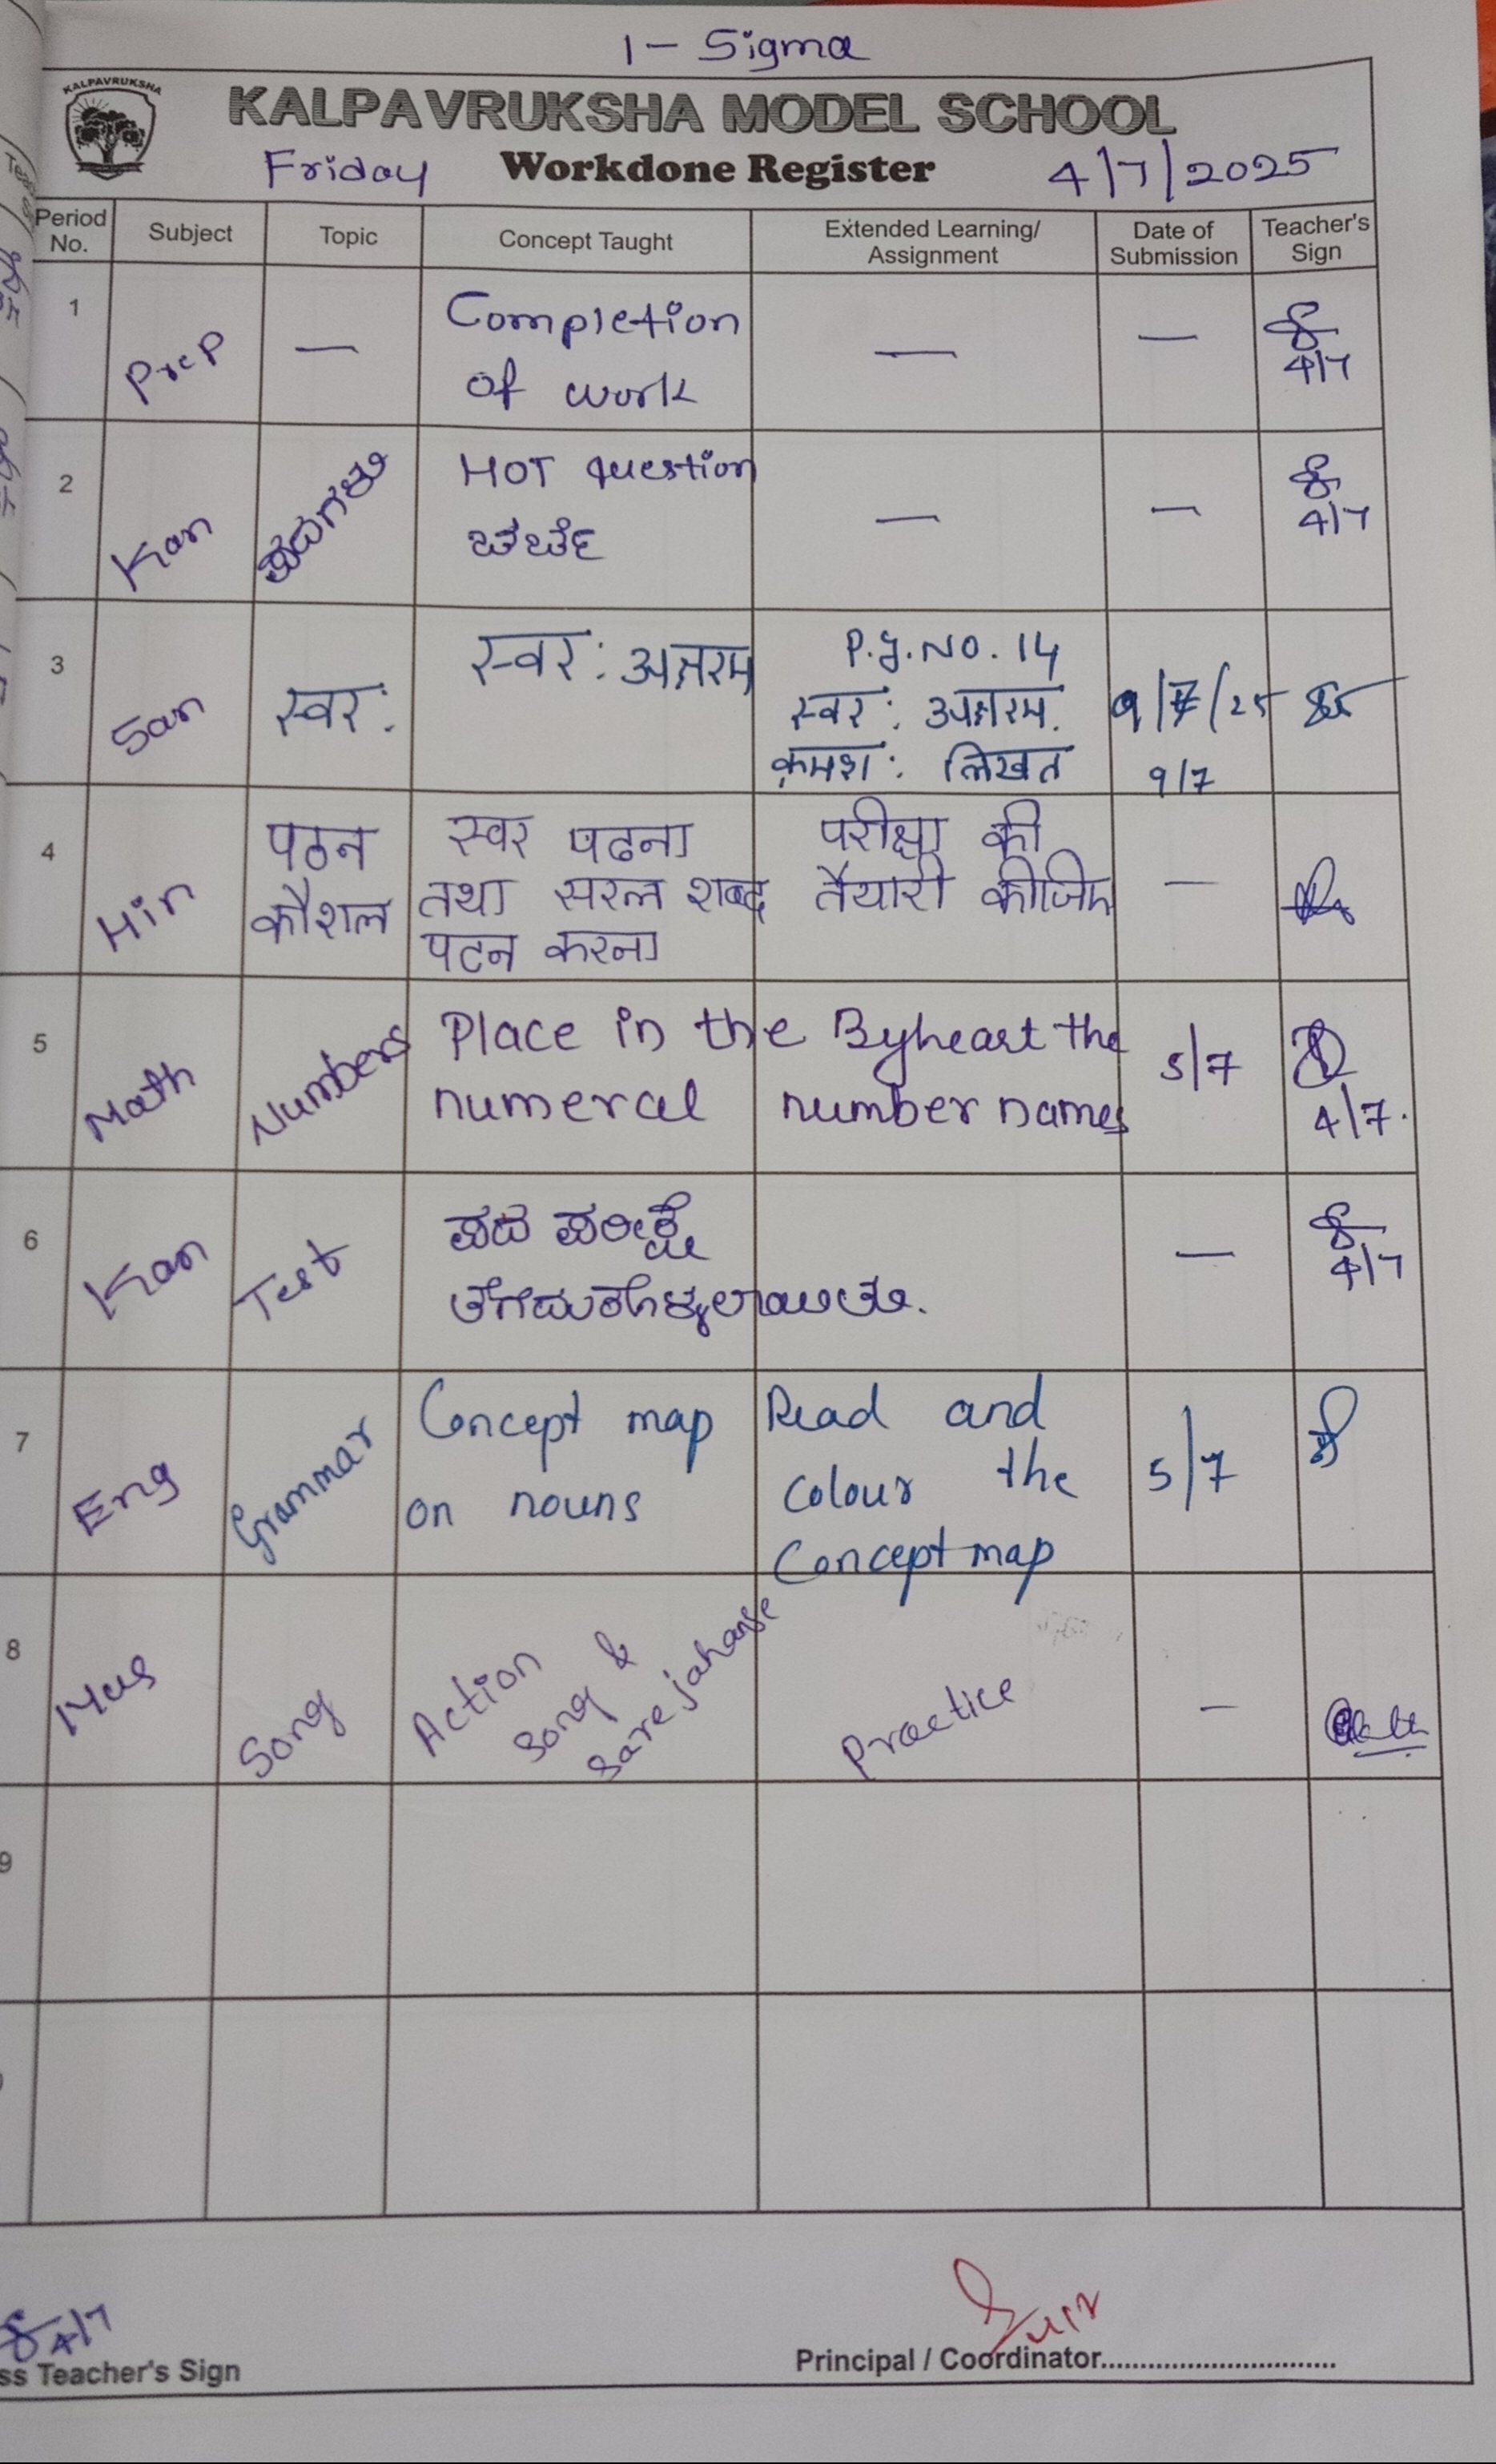 1 - Sigma
KALPAVRUKSHA
KALPAVRUKSHA MODEL SCHOOL
Friday Workdone Register 4/7/2025
Period No. Subject Topic Concept Taught Extended Learning/ Assignment Date of Submission Teacher's Sign
1 Prep — Completion — —
of work 4/7
2 Kan ಪದಗಳು HOT question — —
ಚರ್ಚೆ 4/7
3 San स्वर: स्वर: P.g. No. 14
स्वर: 9/7/25
क्रमश: लिखत 9/7
4 Hin पठन स्वर पढना परीक्षा की
कौशल तथा सरल शब्द तैयारी कीजिए —
पटन करना
5 Math Numbers Place in the Byheart the 5/7
numeral number names 4/7.
6 Kan Test ಪದ ಪರೀಕ್ಷೆ —
ತೆಗೆದುಕೊಳ್ಳಲಾಯಿತು. 4/7
7 Eng Grammar Concept map Read and
on nouns colour the 5/7
Concept map
8 Mus Song Action
song &
sare jahanse Practice —
9
4/7
ss Teacher's Sign Principal / Coordinator..............................